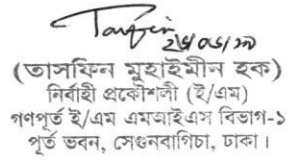 (তাসফিন মুহাইমীন হক)
নির্বাহী প্রকৌশলী (ই/এম)
গণপূর্ত ই/এম এমআইএস বিভাগ-১
পূর্ত ভবন, সেগুনবাগিচা, ঢাকা।